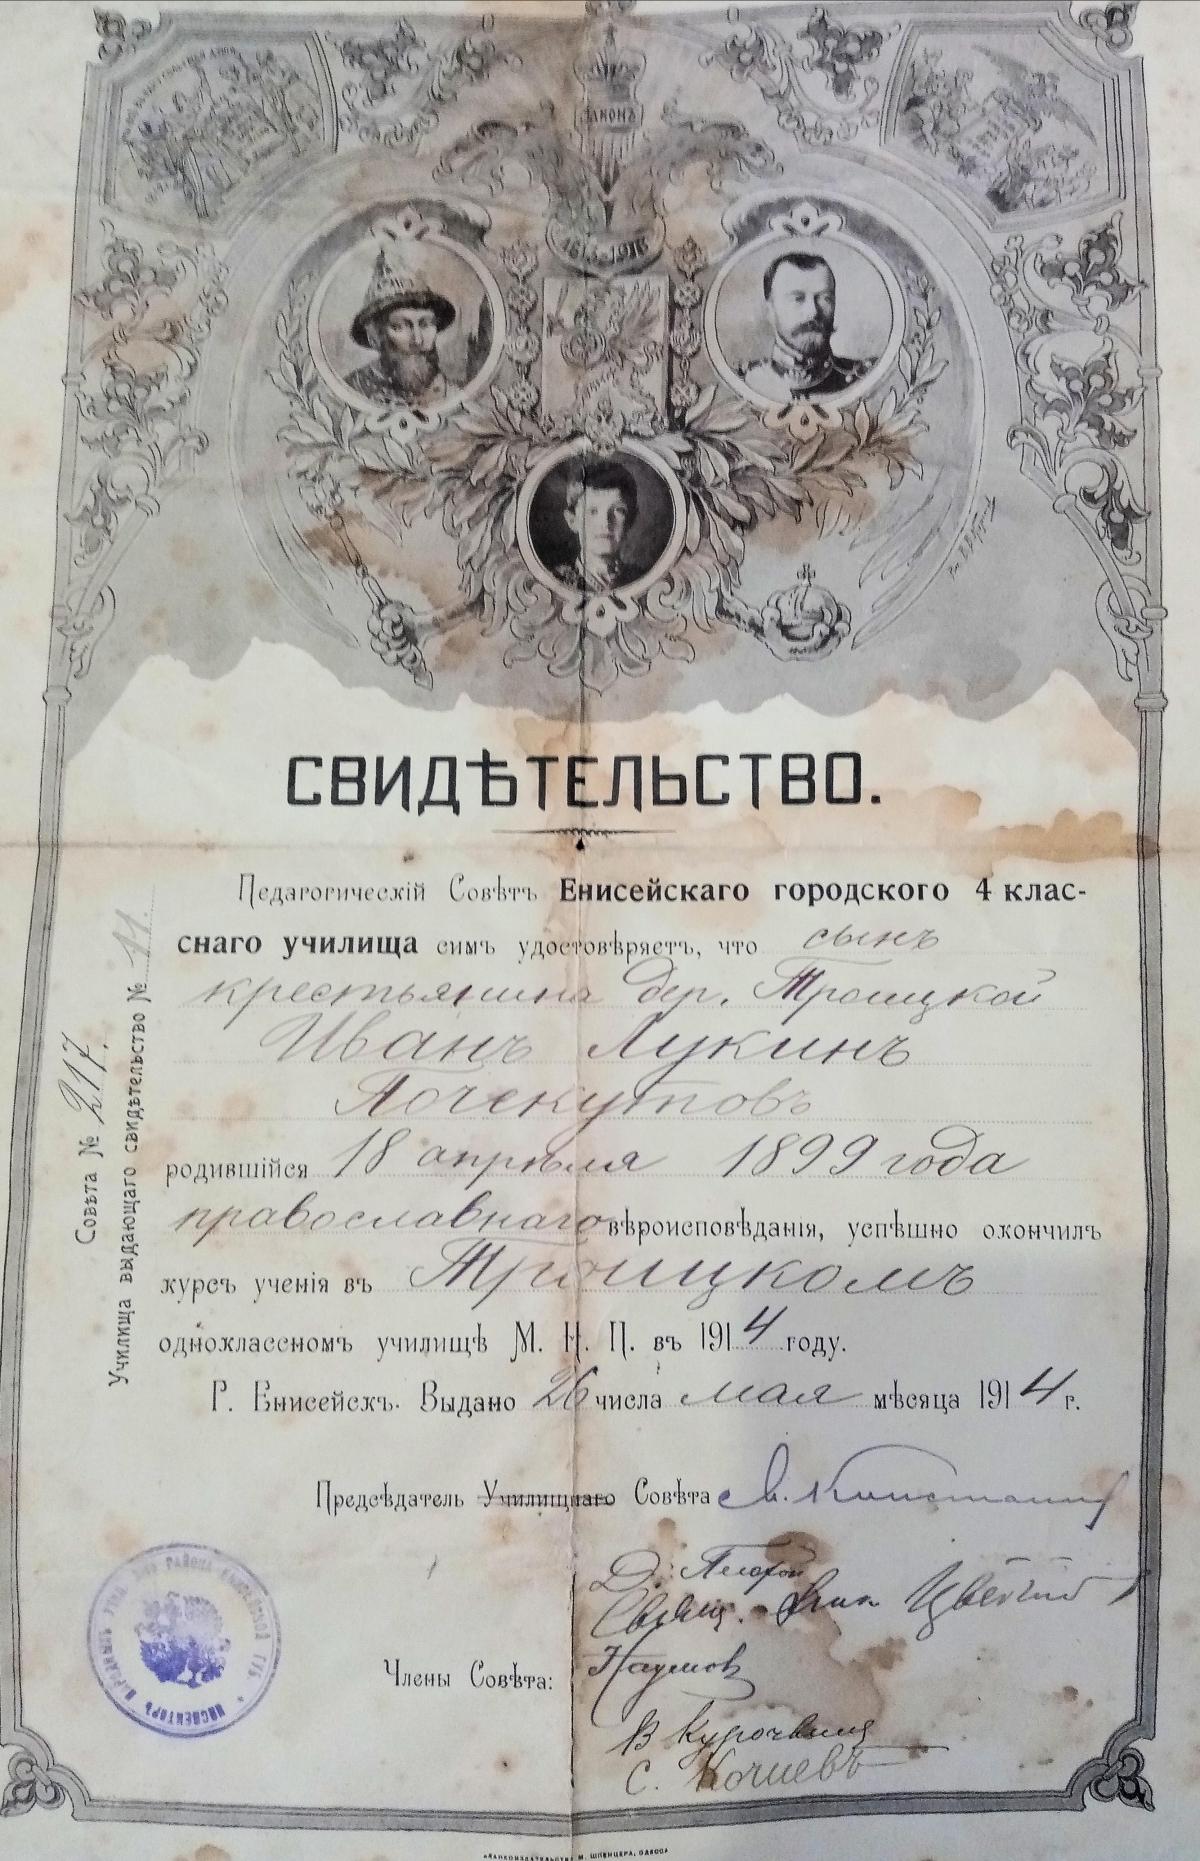 ЗАКОНЪ
1613-1913
СВИДѢТЕЛЬСТВО.
Педагогическій Совѣтъ Енисейскаго городского 4 клас-
снаго училища симъ удостовѣряетъ, что сынъ
крестьянина дер. Троицкой
Иванъ Лукинъ
Почекутовъ
родившійся 18 апрѣля 1899 года
православнаго вѣроисповѣданія, успѣшно окончилъ
курсъ ученія въ Троицкомъ
одноклассномъ училищѣ М. Н. П. въ 1914 году.
Г. Енисейскъ. Выдано 26 числа мая мѣсяца 1914 г.
Совѣта № 217.
Училища выдающаго свидѣтельство № 11.
Предсѣдатель Училищнаго Совѣта
Члены Совѣта:
Свящ.
Наумов
В Курочкина
С. Кочневъ
ИНСПЕКТОРЪ НАРОДНЫХЪ УЧИЛ. РАЙОНА ЕНИСЕЙСКОЙ ГУБ.
М. ШПЕНЦЕРА, ОДЕССА